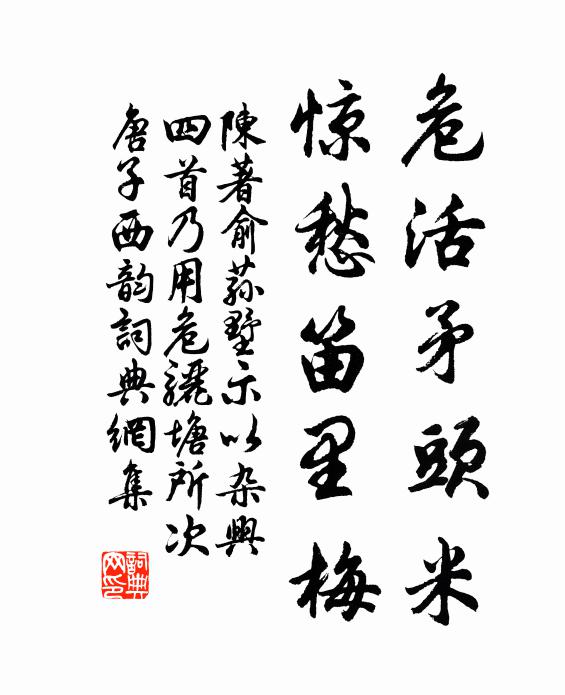 危活矛頭米
惊愁笛里梅
陳著俞荪墅示以杂興
四首乃用危驪塘所次
唐子西韵詞典網集
詞典网印